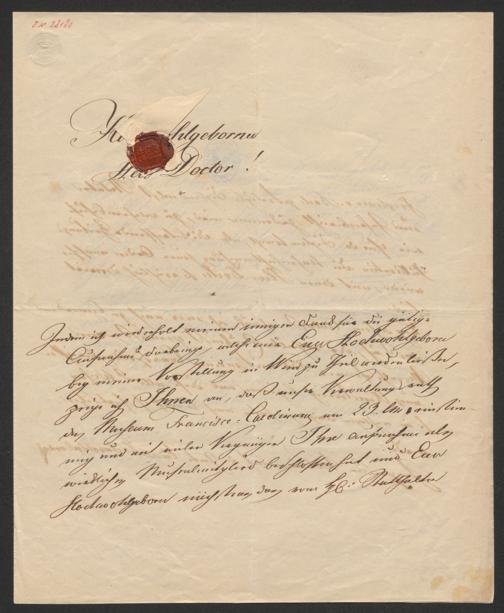 Hochwohlgeborner
Herr Doctor!
Indem ich wiederholt meinen innigen Dank für die gütige
Aufnahme darbringe, welche mir Euer Hochwohlgeborn
bey meiner Vorstellung in Wien zu Theil werden ließen,
zeige ich Ihnen an, daß unser Verwaltungsrath
des Museum Francisco-Carolinum am 29. einstim
mig und mit vielem Vergnügen Ihre Aufnahme als
wirkliches Musealmitglied beschlossen hat und Euer
Hochwohlgeborn nächstens das vom Statthalter